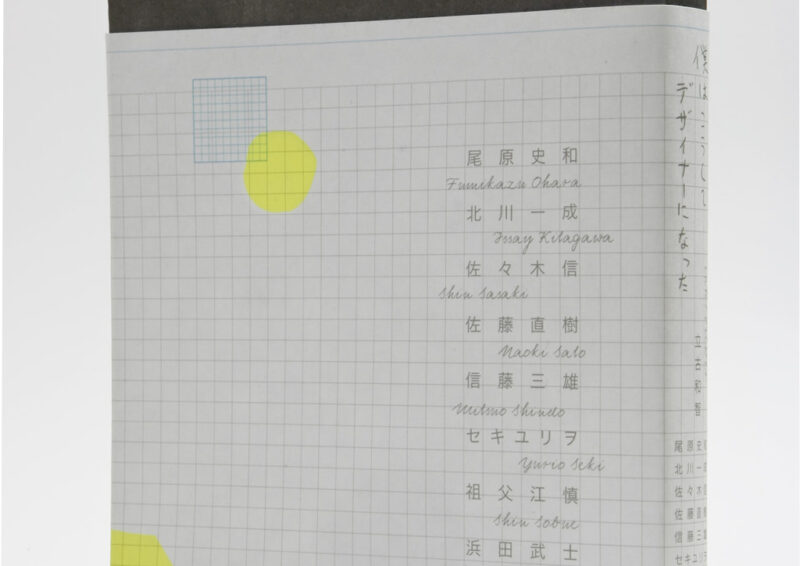 尾原史和
Fumikazu Ohara
北川一成
Issay Kitagawa
佐々木信
Shin Sasaki
佐藤直樹
Naoki Sato
信藤三雄
Mitsuo Shindo
セキユリヲ
Yurio Seki
祖父江慎
Shin Sobue
浜田武士
僕はこうして
デザイナーになった
立古和智
尾原史和
北川一成
佐々木信
佐藤直樹
信藤三雄
セキユリヲ